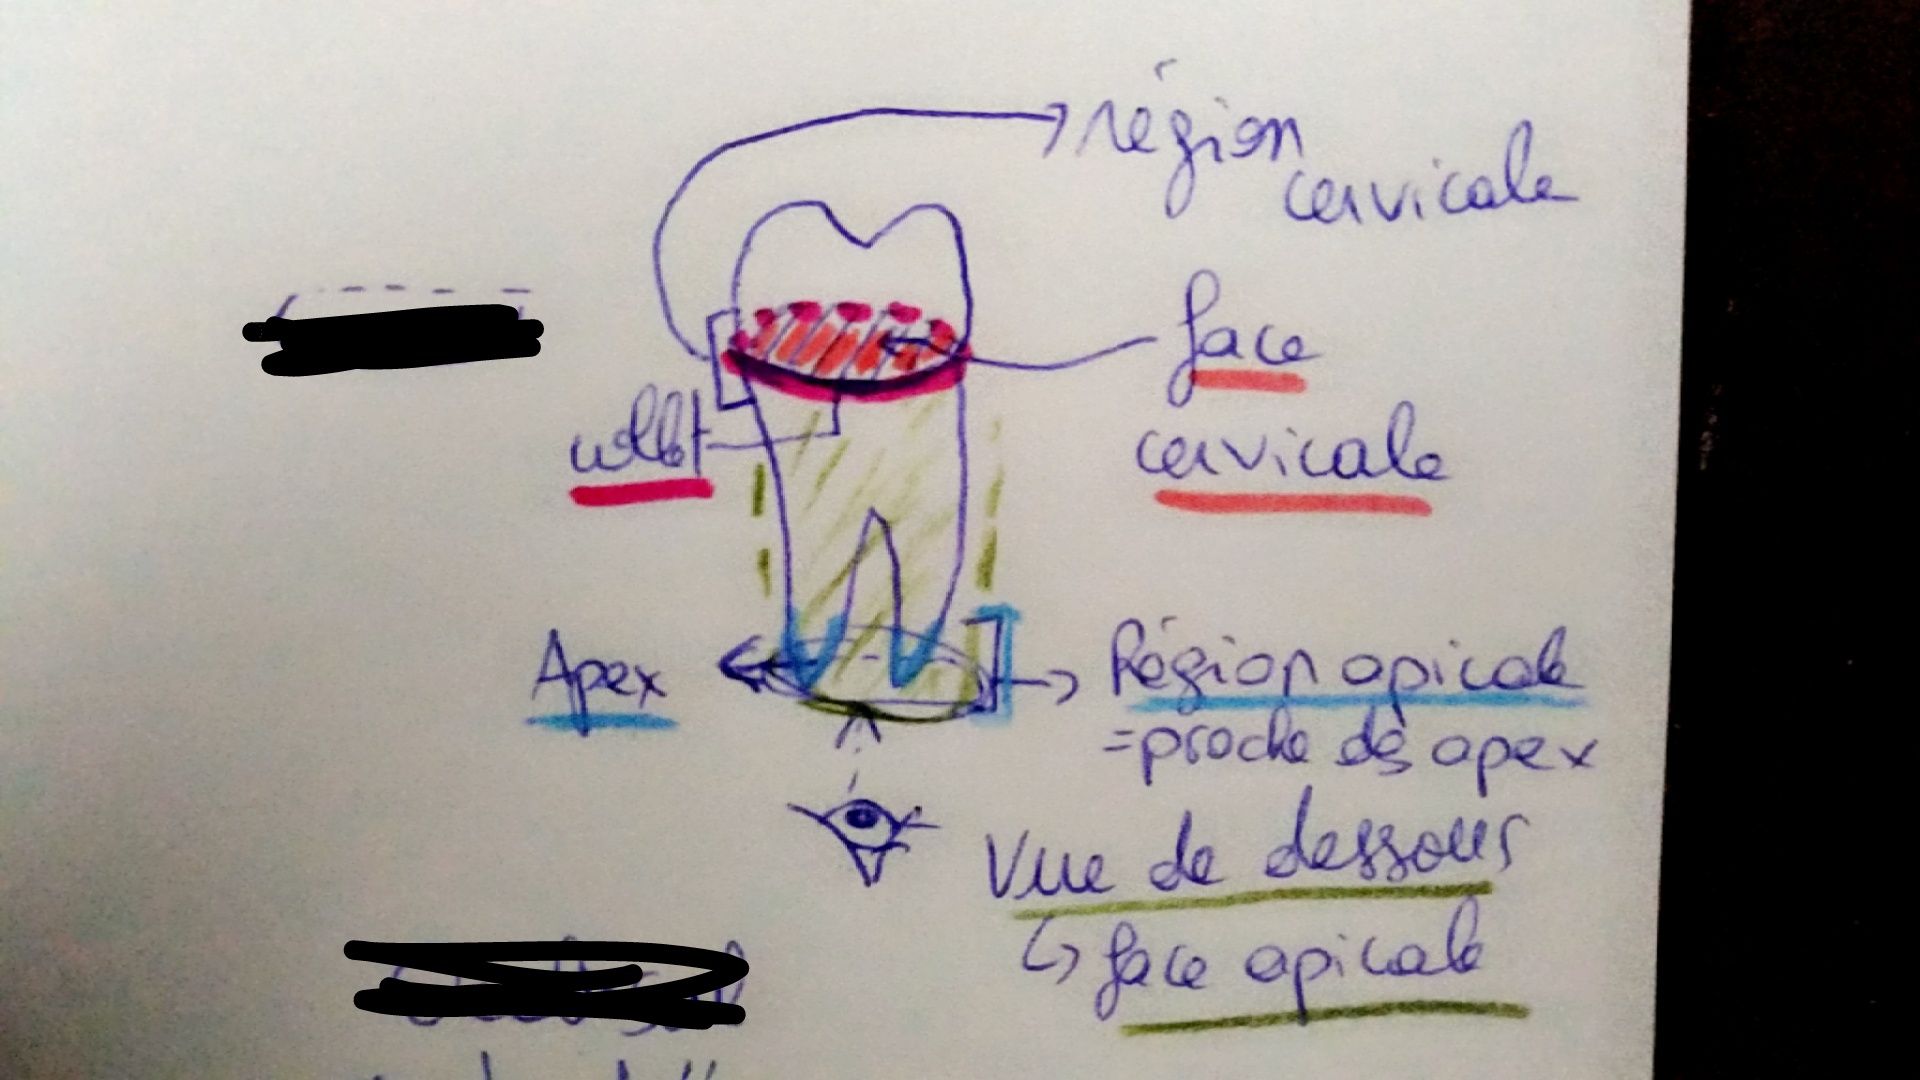 région
cervicale
face
cervicale
collet
Apex
Région apicale
=proche de apex
Vue de dessous
face apicale